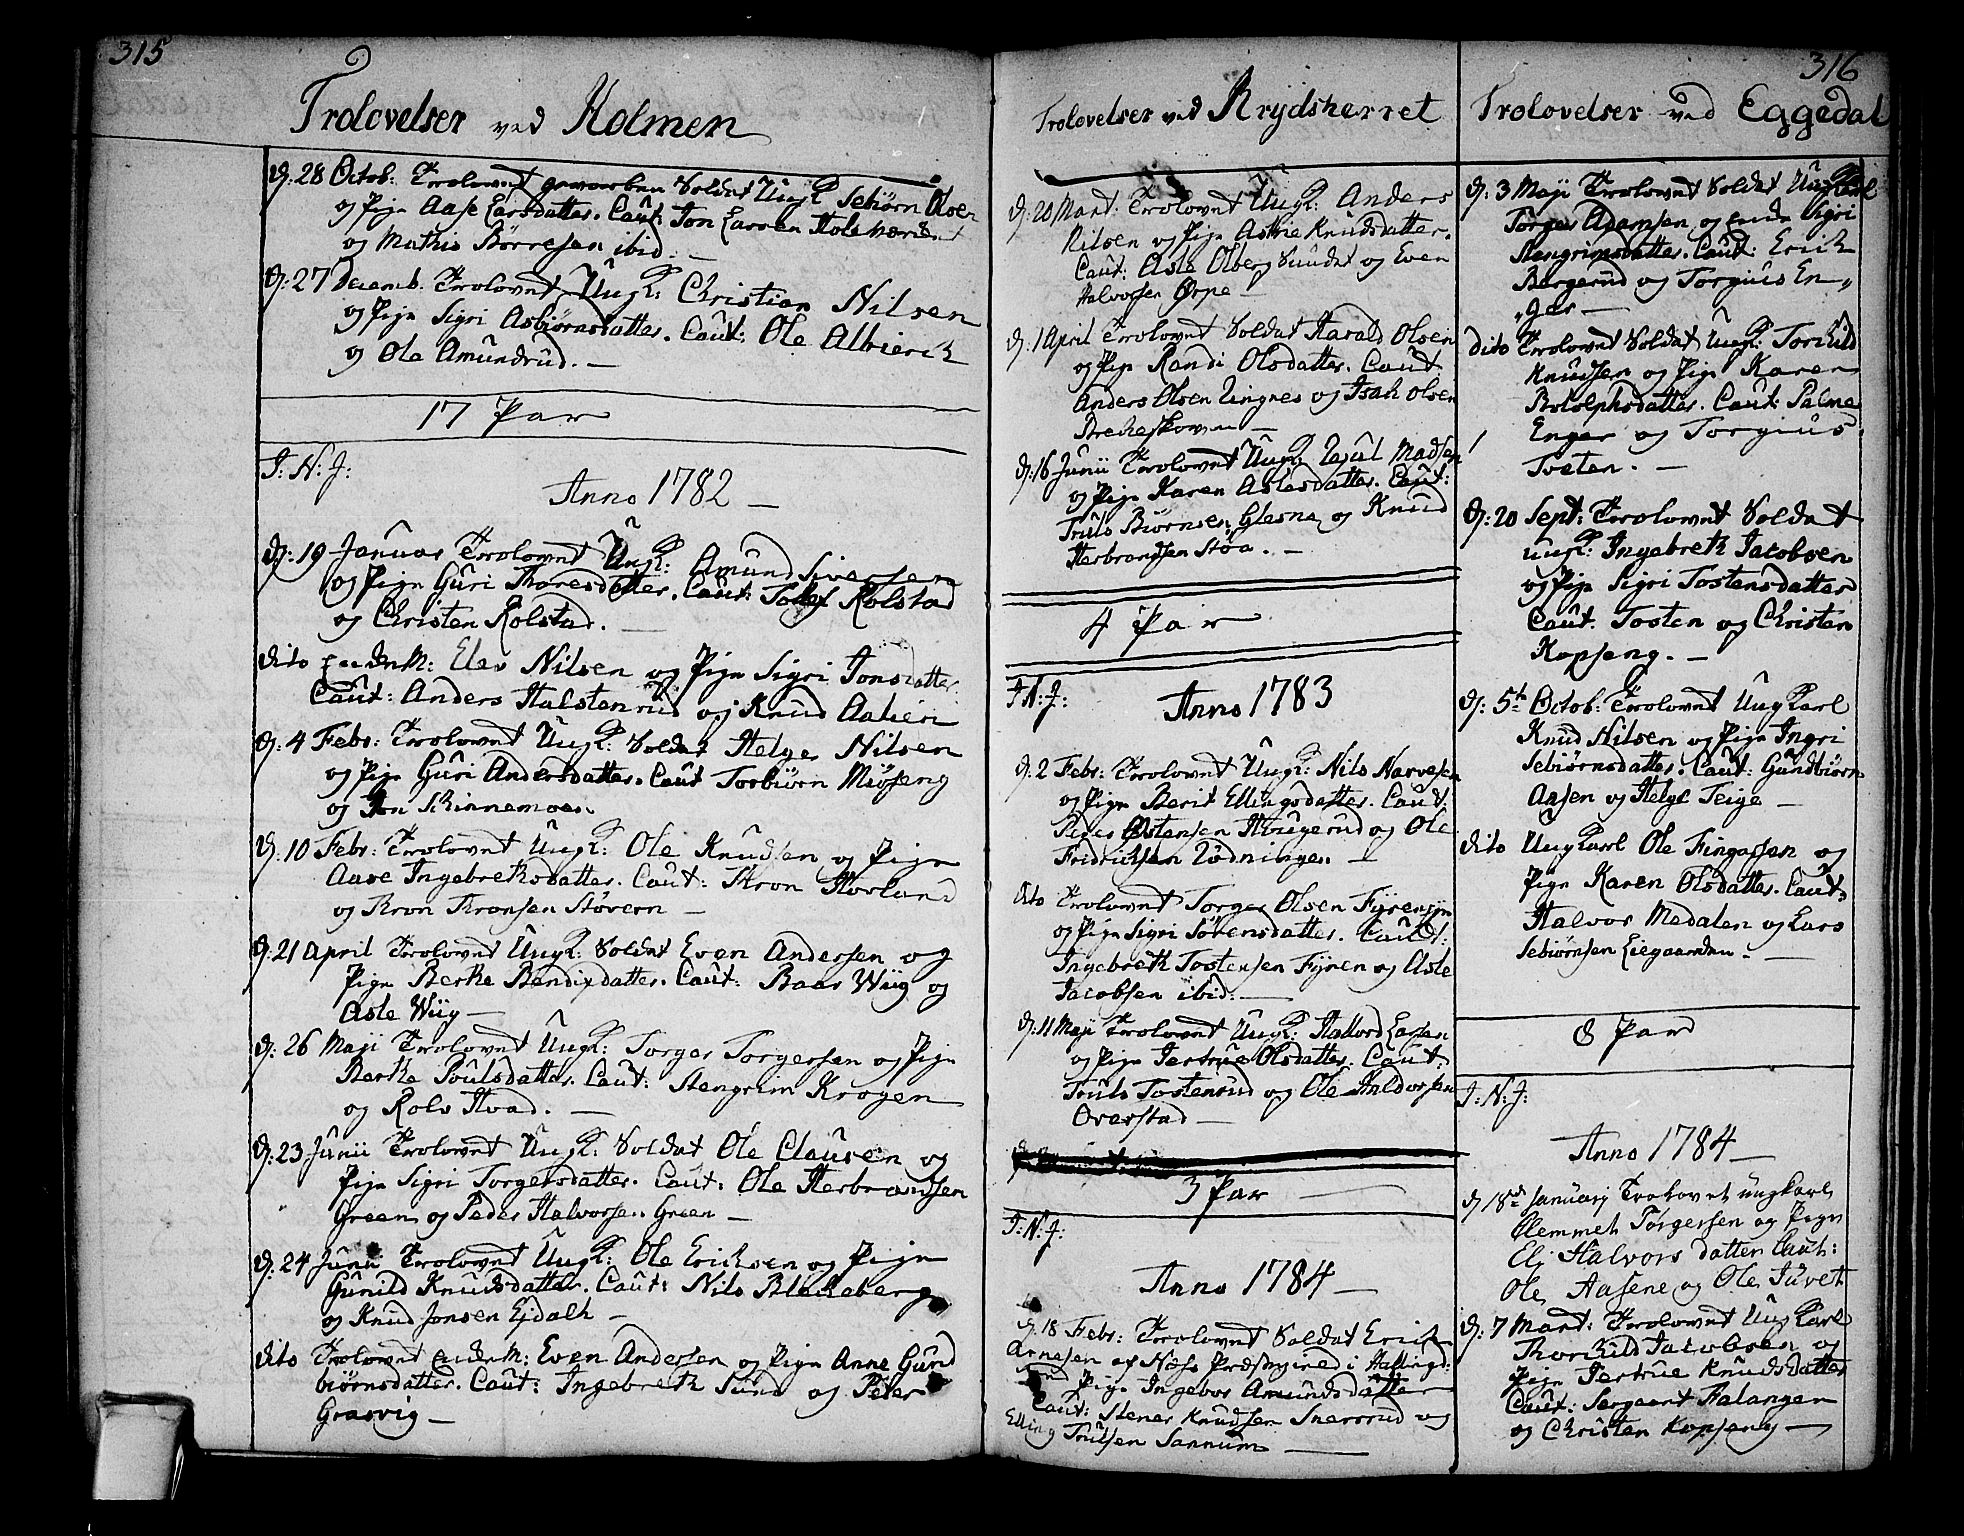 315
Trolovelser ved Holmen
d: 28 Octob: Trolovet geworben Soldat Ungk: Sebiørn Olsen
og Pige Aase Larsdatter. Caut: Jon Larsen
og Mathis Börresen ibid. —
d: 27 Decemb. Trolovet Ungk: Christian Nilsen
og Pige Sigri Asbiørnsdatter. Caut: Ole Albierk
og Ole Amundrud. —
17 Par
I: N: J:
Anno 1782 —
d: 19 Januar Trolovet Ungk: Amund Siversen
og Pige Guri Thoresdatter. Caut: Rolstad
og Christen Rolstad. —
dito Elev Nilsen og Pige Sigri Jonsdatter
Caut: Anders Halstenrud og Knud
d: 4 Febr: Trolovet Ungk: Soldat Helge Nilsen
og Pige Guri Andersdatter. Caut Torbiørn Miøseng
og Jon Skinnemoen.
d: 10 Febr: Trolovet Ungk: Ole Knudsen og Pige
Aase Ingebrethsdatter. Caut: Thron Horland
og Thron Thronsen Støvern —
d: 21 April Trolovet Ungk: Soldat Even Andersen og
Pige Berthe Bendixdatter. Caut: Baar Wiig og
Asle Wiig —
d: 26 Maji Trolovet Ungk: Torger Torgersen og Pige
Berthe Poulsdatter. Caut: Stengrim Krogen
og Rolv Hvad. —
d: 23 Junii Trolovet Ungk: Soldat Ole Clausen og
Pige Sigri Torgersdatter. Caut: Ole Herbrandsen
Green og Peder Halvorsen Green —
d: 24 Junii Trolovet Ungk: Ole Ericksen og Pige
Gunild Knudsdatter. Caut: Nils Bleckeberg
og Knud Jonsen Ejdalh —
dito Trolovet Even Andersen og Pige Anne Gund
biørnsdatter. Caut: Ingebreth Sund og Peter
Grasvig —
Trolovelser ved Krydsherret
d: 20 Mart: Trolovet Ungk: Anders
Nilsen og Pige Astrie Knudsdatter.
Caut: Asle Olberg Sundet og Even
Halvorsen Ørpe —
d: 1 April Trolovet Soldat Harald Olsen
og Pige Randi Olsdatter. Caut
Anders Olsen Ringnes og Isak Olsen
Brekeskoven —
d: 16 Junii Trolovet Ungk: Madsen
og Pige Karen Aslesdatter. Caut:
Truls Biørnsen Glesne og Knud
Herbrandsen Støa. —
4 Par
I: N: J:
Anno 1783
d: 2 Febr: Trolovet Ungk: Nils Narvesen
og Pige Berit Ellingsdatter. Caut:
Peder Østensen Hougerud og Ole
Fridrichsen Lødninge. —
dito Trolovet Torger Olsen Fyrensin
og Pige Sigri Sørensdatter. Caut:
Ingebreth Tostensen Fyren og Asle
Jacobsen ibid: —
d: 11 Maji Trolovet Ungk: Halvord Larsen
og Pige Jertrue Olsdatter. Caut:
Truls Tostensrud og Ole Haldvorsen
Overstad —
3 Par
I: N: J:
Anno 1784 —
d: 18 Febr: Trolovet Soldat Erich
Arnesen af Næss Præstegield i Hallingd:
Pige Ingebor Amundsdatter
Caut: Stener Knudsen Snersrud og
Elling Trulsen Sannum —
316
Trolovelser ved Eggedal
d: 3 Maji Trolovet Soldat Ungkarl
Torger Adamsen og Enke Sigri
Stengrimsdatter. Caut: Erick
Bergerud og Torgius En„
„ger —
dito Trolovet Soldat Ungk: Torkild
Knudsen og Pige Karen
Botolphsdatter. Caut: Palme
Enger og Torgius
Tveten. —
d: 20 Sept: Trolovet Soldat
Ungk: Ingebreth Jacobsen
og Pige Sigri Tostensdatter
Caut. Tosten og Christen
Kopseng. —
d: 5te Octob: Trolovet Ungkarl
Knud Nilsen og Pige Ingri
Sebiørnsdatter. Caut: Gundbiørn
Aasen og Helge Teige —
dito Ungkarl Ole Fingarsen og
Pige Karen Olsdatter. Caut:
Halvor Medalen og Lars
Sebiørnsen Eiegaarden. —
8 Par
I: N: J:
Anno 1784 —
d 18de Januarj Trolovet ungkarl
Clemmet Torgersen og Pigen
Elj Halvors datter Caut:
Ole Aasene og Ole Juvet
d: 7 Mart: Trolovet Ungkarl
Thorkild Jacobsen og
Pige Jertrue Knudsdatter
Caut: Sergeant Falangen
og Christen Kopseng —